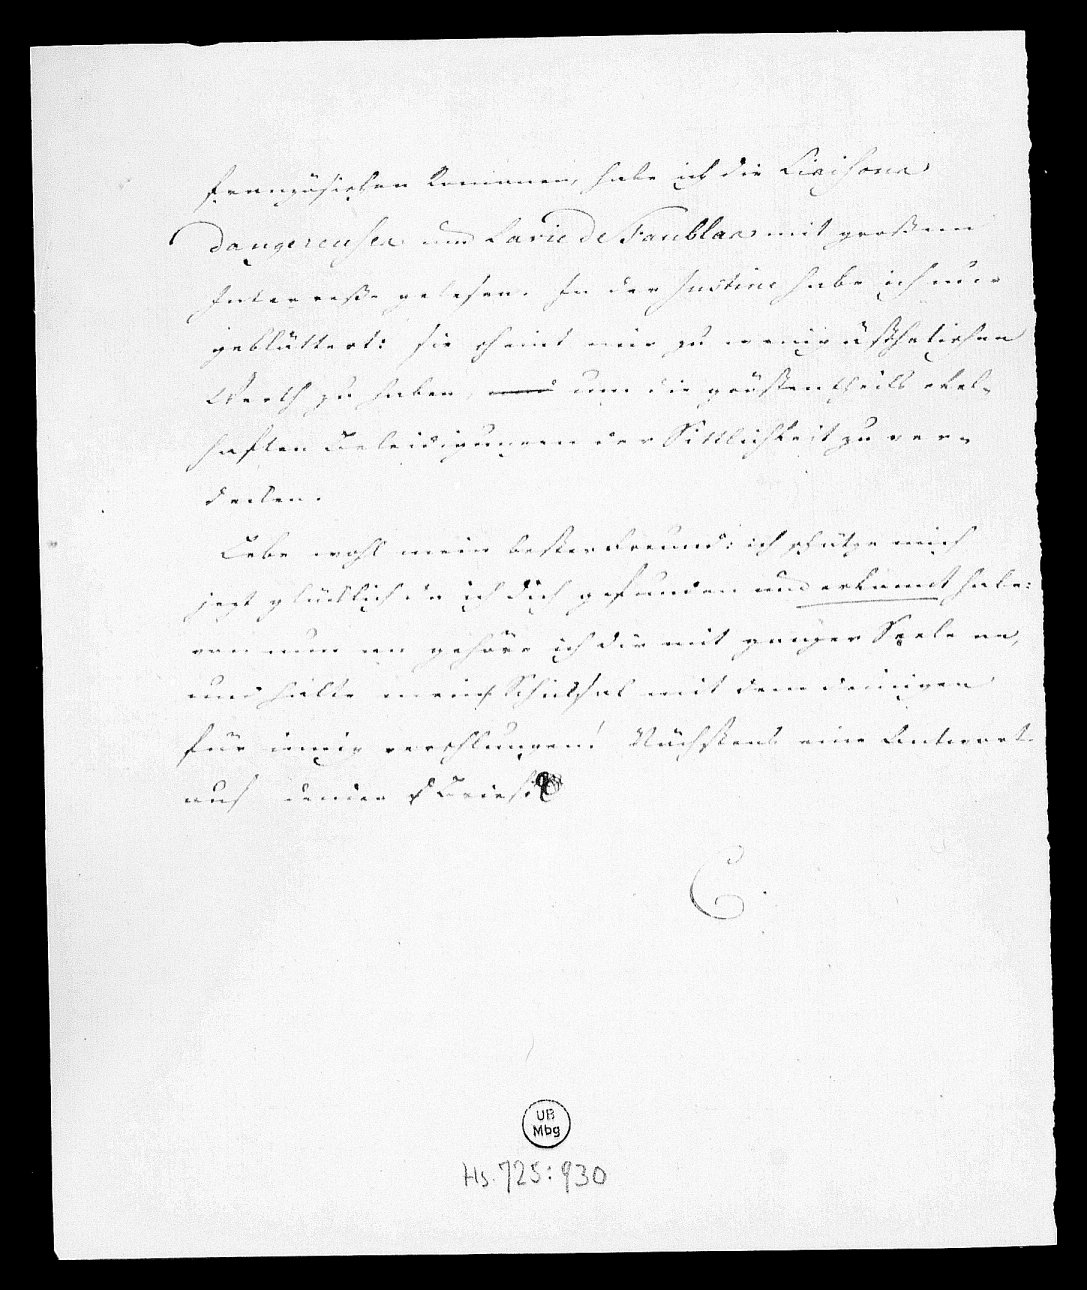 französischen Romanen, habe ich die Liaisons
dangereuses und La vie de Faublas mit großem
Interesse gelesen. In der Justine habe ich nur
geblättert: sie scheint mir zu wenig ästhetischen
Werth zu haben, um die größtentheils ekel-
haften Beleidigungen der Sittlichkeit zu ver-
decken.
Lebe wohl mein bester Freund: ich schätze mich
jezt glücklich da ich dich gefunden und erkannt habe:
von nun an gehöre ich dir mit ganzer Seele an,
und halte mein Schiksal mit dem deinigen
für innig verschlungen! Nächstens eine Antwort
auf deinen Brief
C.
UB
Mbg
Hs. 725:930